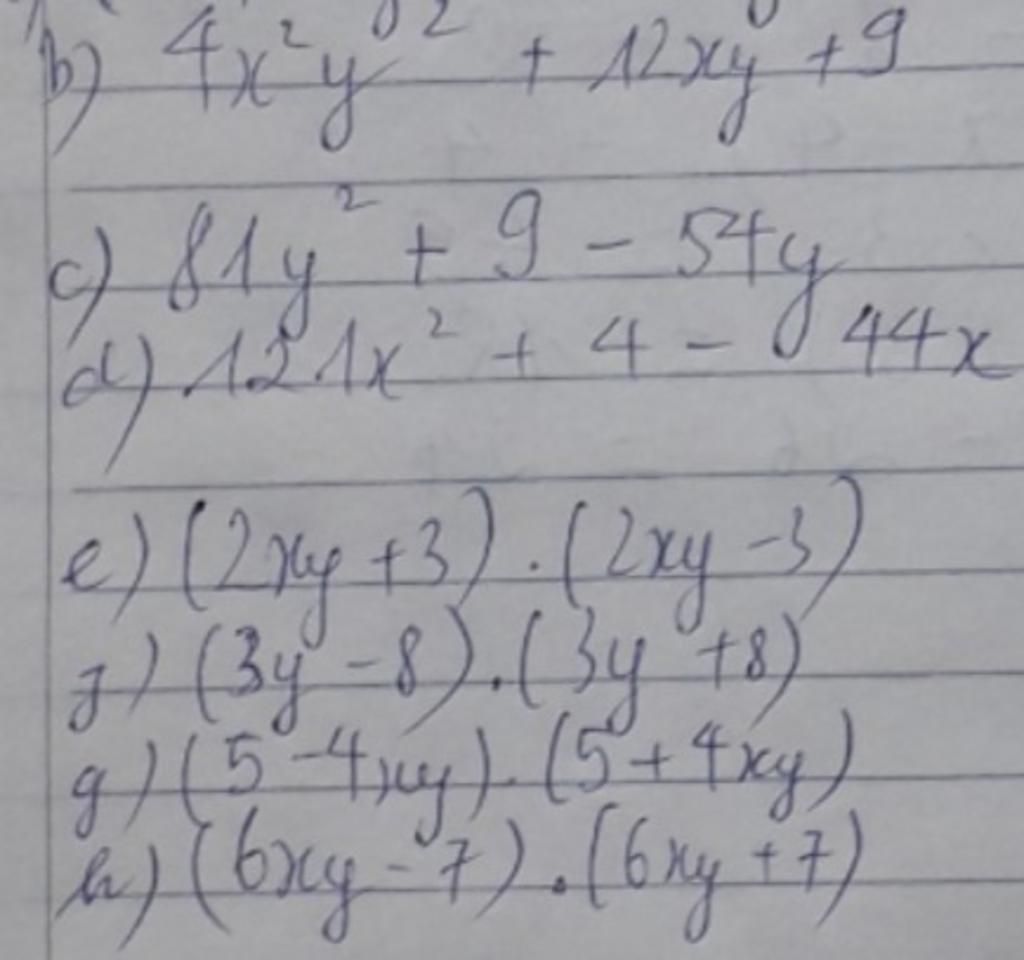 b) 4x²y² + 12xy + 9
c) 81y² + 9 - 54y
d) 121x² + 4 - 44x
e) (2xy + 3) . (2xy - 3)
f) (3y - 8) . (3y + 8)
g) (5 - 4xy) . (5 + 4xy)
h) (6xy - 7) . (6xy + 7)